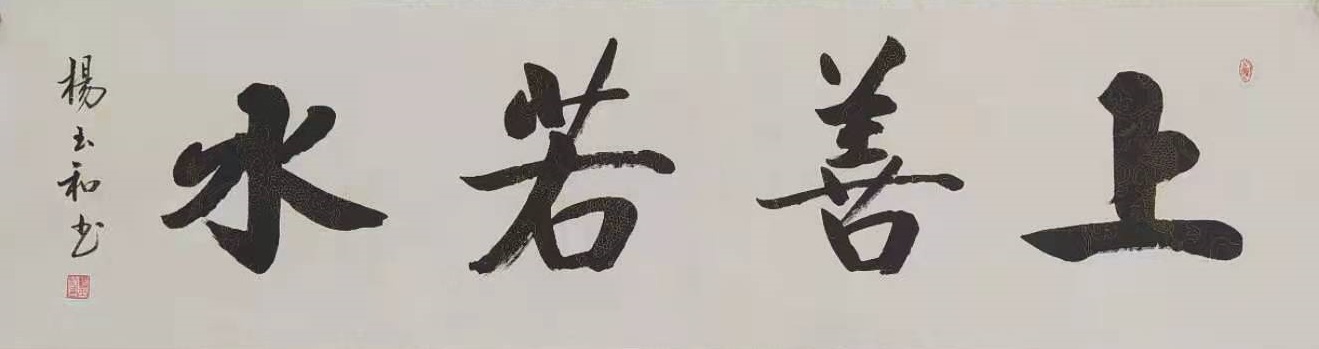 上善若水
楊玉和书